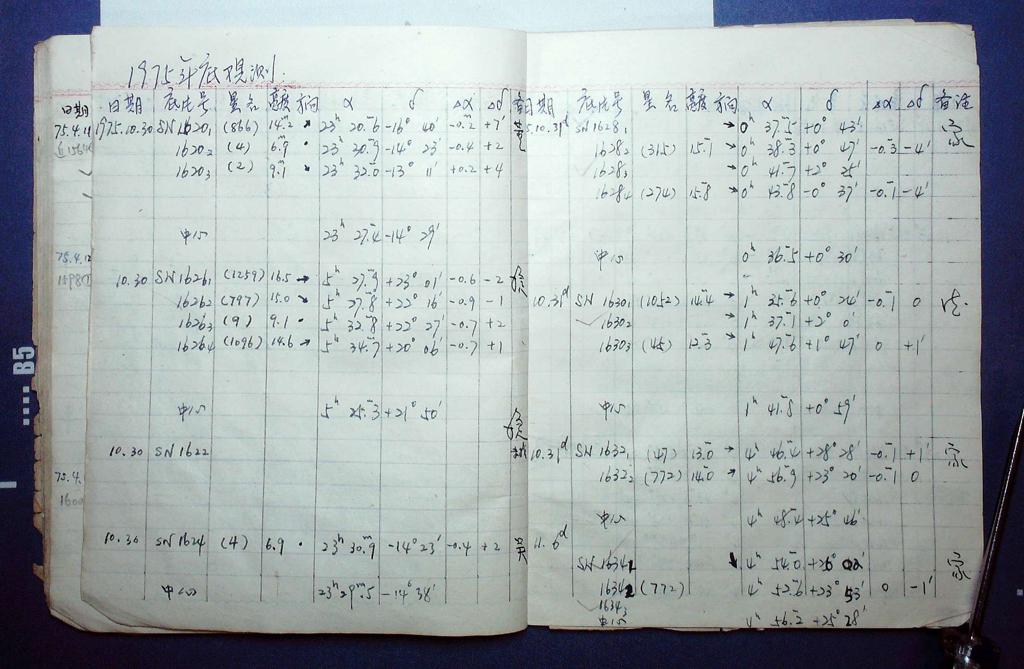 1975年底观测.
日期 底片号 星名 亮度 方向 α δ Δα Δδ
1975.10.30 SN 1620₁ (866) 14.ᵐ2 23ʰ 20.ᵐ6 -16° 40′ -0.ᵐ2 +7′
1620₂ (4) 6.ᵐ9 • 23ʰ 30.ᵐ9 -14° 23′ -0.4 +2
1620₃ (2) 9.ᵐ1 • 23ʰ 32.ᵐ0 -13° 11′ +0.2 +4
中心 23ʰ 27.ᵐ4 -14° 29′
10.30 SN 1626₁ (1259) 16.5 → 5ʰ 27.ᵐ9 +23° 01′ -0.6 -2
1626₂ (797) 15.0 • 5ʰ 27.ᵐ8 +22° 16′ -0.9 -1
1626₃ (9) 9.1 • 5ʰ 32.ᵐ8 +22° 27′ -0.7 +2
1626₄ (1096) 14.6 → 5ʰ 34.ᵐ7 +20° 06′ -0.7 +1
中心 5ʰ 25.ᵐ3 +21° 50′
10.30 SN 1622
10.30 SN 1624 (4) 6.9 • 23ʰ 30.ᵐ9 -14° 23′ -0.4 +2
中心 23ʰ 29.ᵐ5 -14° 38′
日期
75.4.11
75.4.12
75.4.
1600
日期 底片号 星名 亮度 方向 α δ Δα Δδ 备注
10.31ᵈ SN 1628₁ → 0ʰ 37.ᵐ5 +0° 43′
1628₂ (315) 15.ᵐ1 → 0ʰ 38.ᵐ3 +0° 47′ -0.ᵐ3 -4′
1628₃ → 0ʰ 41.ᵐ7 +2° 25′
1628₄ (274) 15.ᵐ8 → 0ʰ 43.ᵐ8 -0° 37′ -0.ᵐ1 -4′
中心 0ʰ 36.ᵐ5 +0° 30′
10.31ᵈ SN 1630₁ (1052) 14.ᵐ4 → 1ʰ 35.ᵐ6 +0° 24′ -0.ᵐ1 0
1630₂ → 1ʰ 37.ᵐ1 +2° 0′
1630₃ (45) 12.ᵐ3 → 1ʰ 47.ᵐ6 +1° 47′ 0 +1′
中心 1ʰ 41.ᵐ8 +0° 59′
10.31ᵈ SN 1632₁ (47) 13.ᵐ0 → 4ʰ 46.ᵐ4 +28° 28′ -0.ᵐ1 +1′
1632₂ (772) 14.ᵐ0 → 4ʰ 56.ᵐ9 +23° 20′ -0.ᵐ1 0
中心 4ʰ 48.ᵐ4 +25° 46′
11.6ᵈ
SN 1634₁ 4ʰ 54.ᵐ0 +26°
1634₂ (772) 4ʰ 52.ᵐ6 +23° 53′ 0 -1′
1634₃
中心 4ʰ 56.ᵐ2 +25° 28′
B5